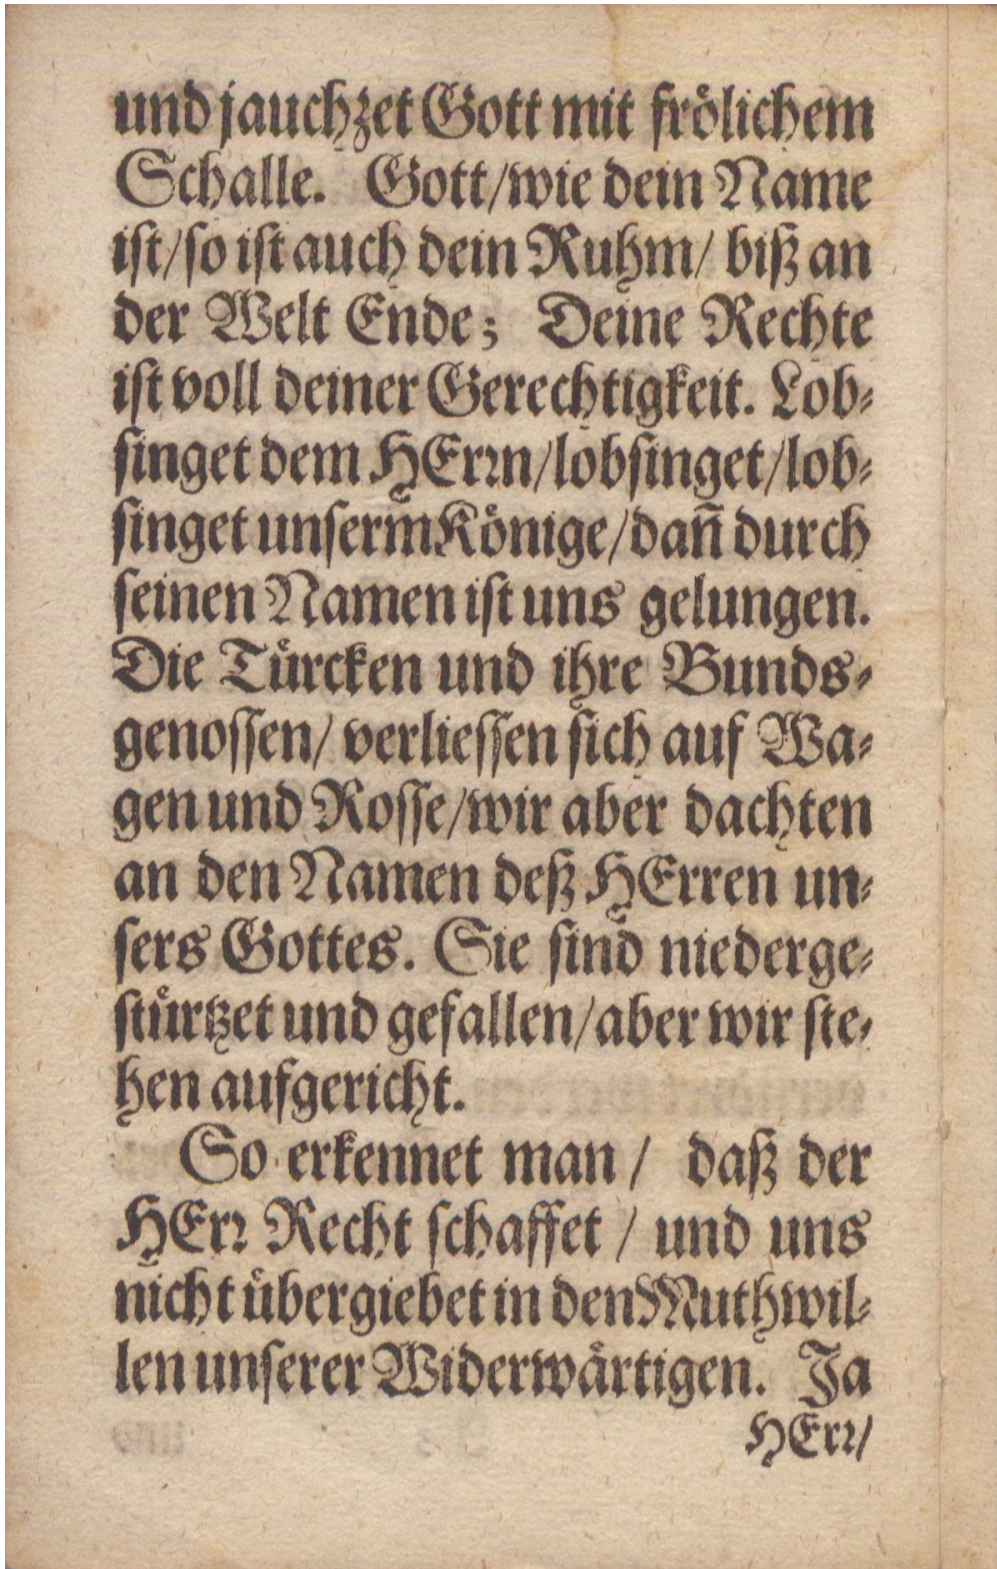 und jauchzet Gott mit frölichem
Schalle. Gott/wie dein Name
ist/so ist auch dein Ruhm/ biß an
der Welt Ende; Deine Rechte
ist voll deiner Gerechtigkeit. Lob-
singet dem HErrn/lobsinget/lob-
singet unserm Könige/dañ durch
seinen Namen ist uns gelungen.
Die Türcken und ihre Bunds-
genossen/ verliessen sich auf Wa-
gen und Rosse/wir aber dachten
an den Namen deß HErren un-
sers Gottes. Sie sind niederge-
stürtzet und gefallen/aber wir ste-
hen aufgericht.
So erkennet man/ daß der
HErr Recht schaffet / und uns
nicht übergiebet in den Muthwil-
len unserer Widerwärtigen. Ja
HErr/